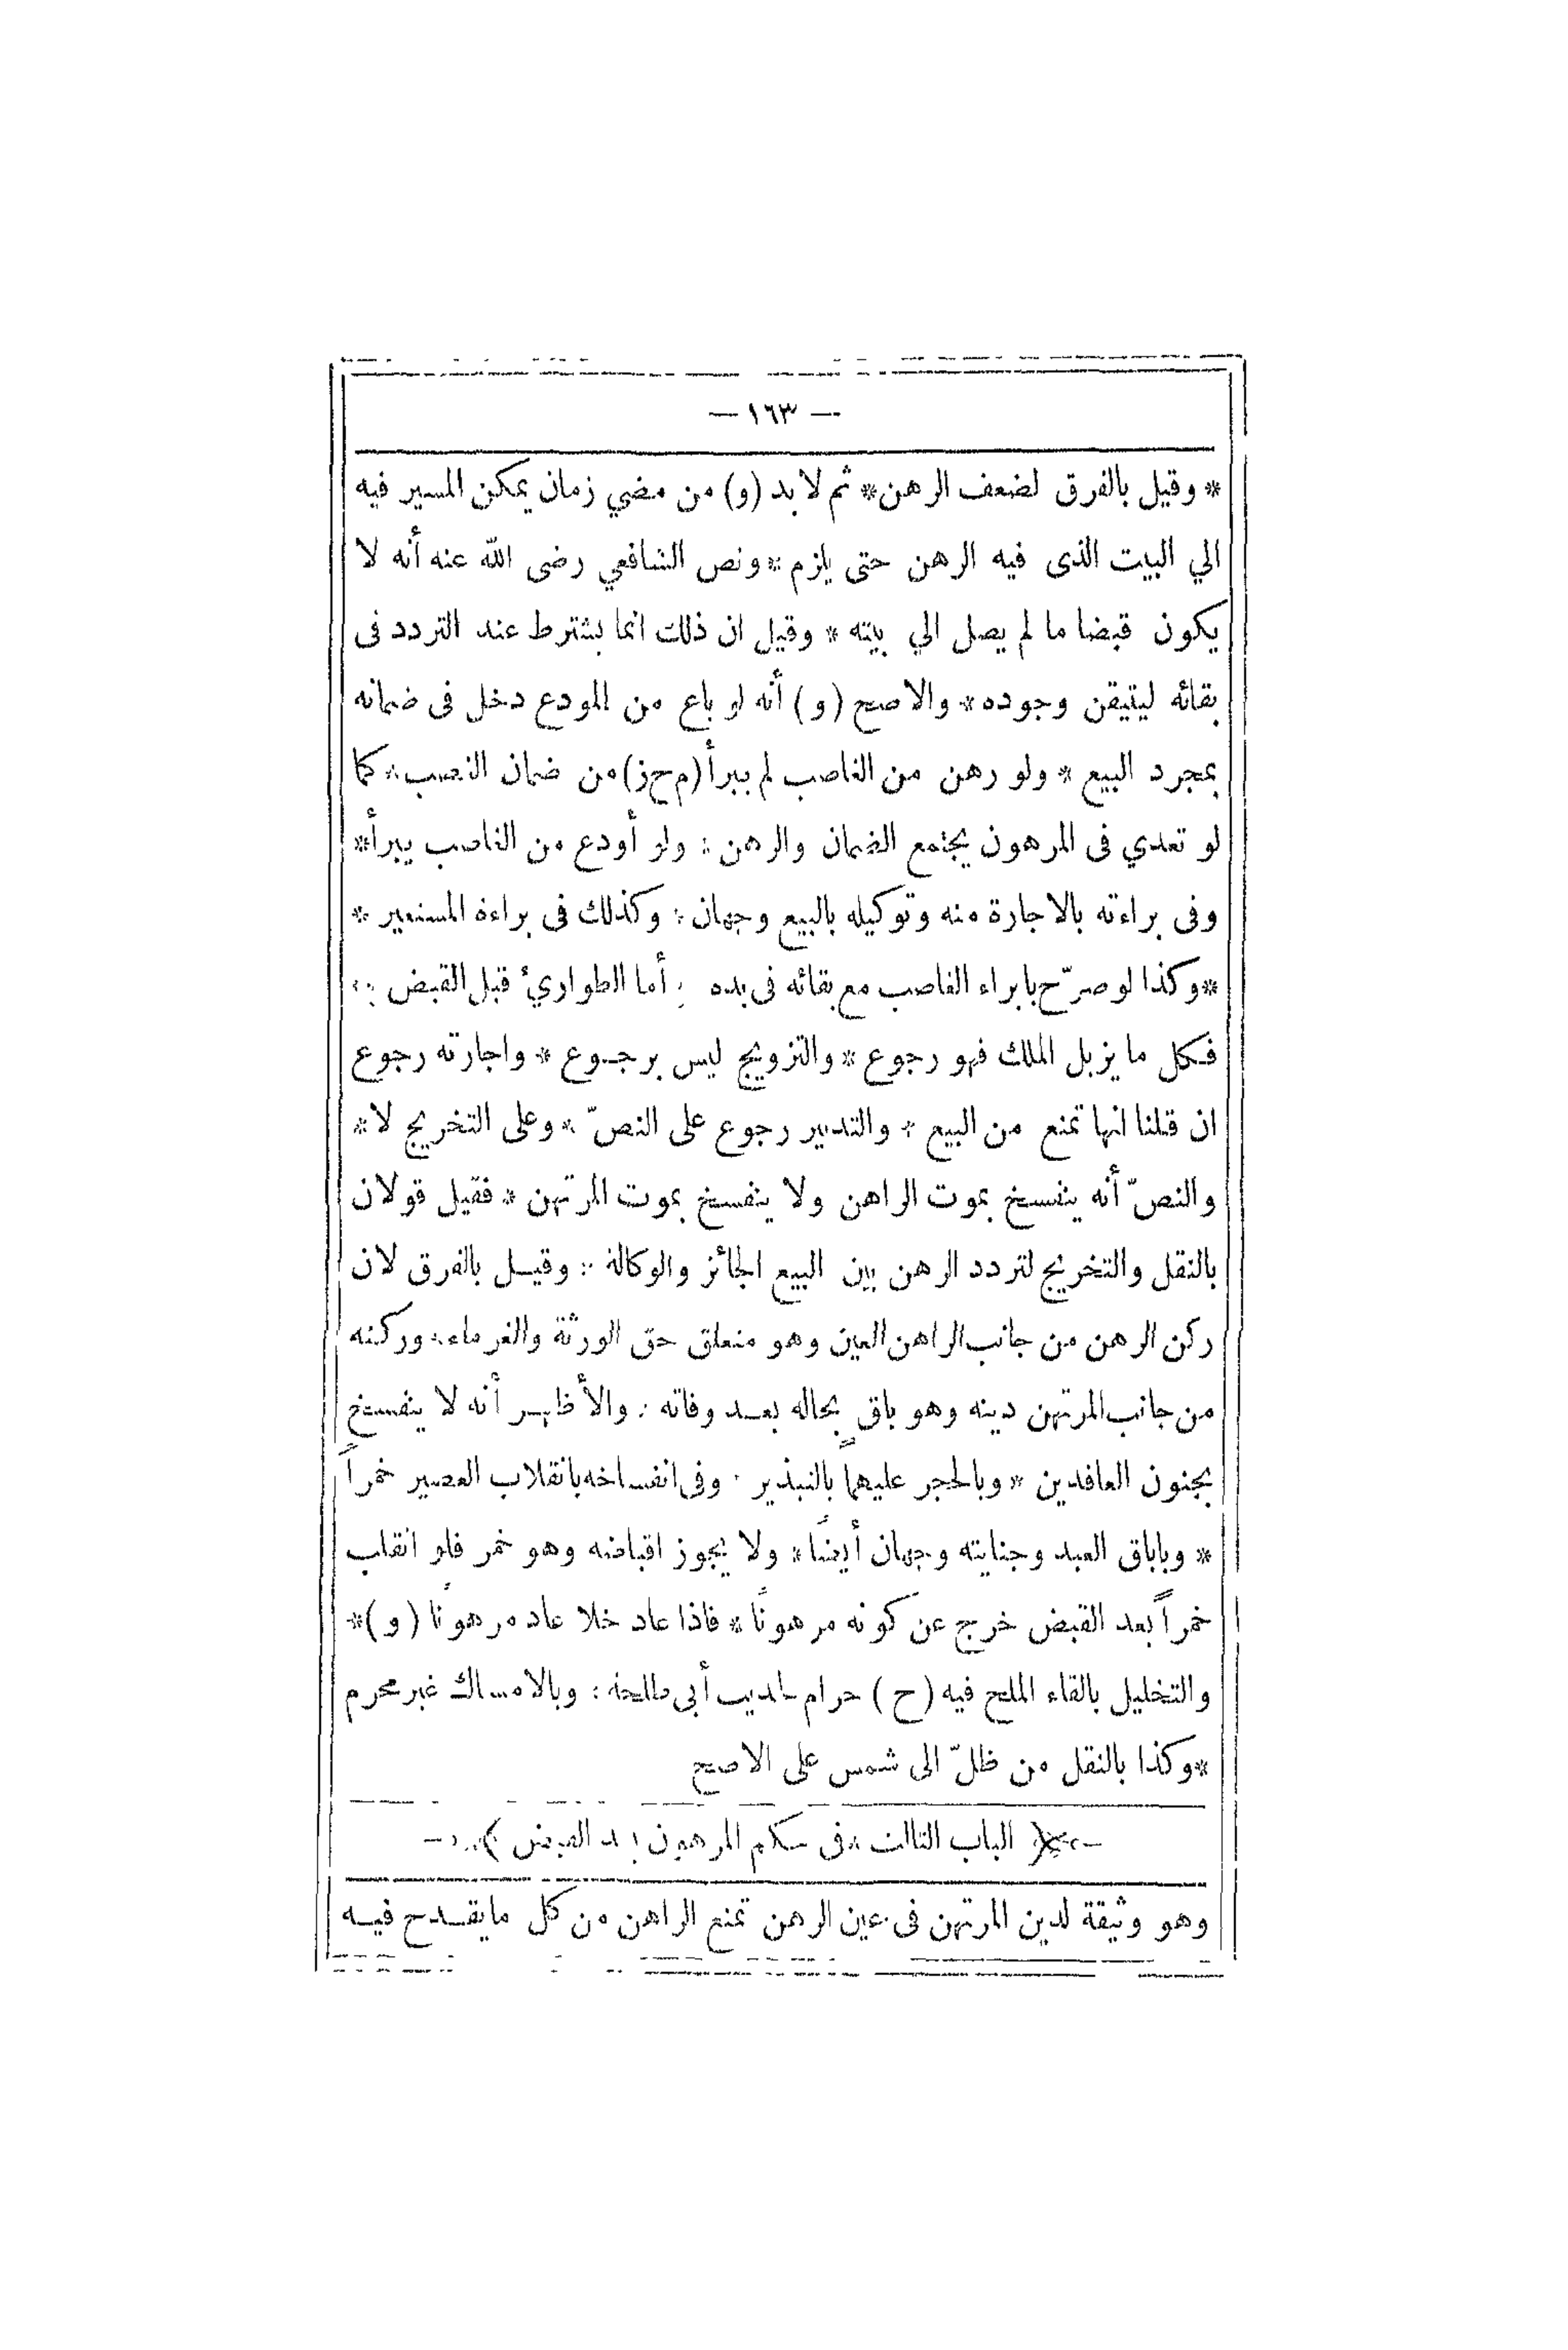 — ١٦٣ —
* وقيل بالفرق لضعف الرهن* ثم لا بد (و) من مضي زمان يمكن المسير فيه
الي البيت الذى فيه الرهن حتى يلزم * ونص الشافعي رضى الله عنه أنه لا
يكون قبضا ما لم يصل الي بيته * وقيل ان ذلك انما يشترط عند التردد فى
بقائه ليتيقن وجوده* والاصح (و) أنه لو باع من المودع دخل فى ضمانه
بمجرد البيع * ولو رهن من الغاصب لم يبرأ (م ح ز) من ضمان الغصب* كما
لو تعدي فى المرهون يجتمع الضمان والرهن * ولو أودع من الغاصب يبرأ*
وفى براءته بالاجارة منه وتوكيله بالبيع وجهان * وكذلك فى براءة المستعير *
*وكذا لو صرّح بابراء الغاصب مع بقائه فى يده * أما الطوارئ قبل القبض *
فكل ما يزيل الملك فهو رجوع * والتزويج ليس برجوع * واجارته رجوع
ان قلنا انها تمنع من البيع * والتدبير رجوع على النصّ * وعلى التخريج لا*
والنصّ أنه ينفسخ بموت الراهن ولا ينفسخ بموت المرتهن * فقيل قولان
بالنقل والتخريج لتردد الرهن بين البيع الجائز والوكالة * وقيل بالفرق لان
ركن الرهن من جانب الراهن العين وهو متعلق حق الورثة والغرماء* وركنه
من جانب المرتهن دينه وهو باق بحاله بعد وفاته * والأظهر أنه لا ينفسخ
بجنون العاقدين * وبالحجر عليهما بالتبذير * وفى انفساخه بانقلاب العصير خمراً
* وباباق العبد وجنايته وجهان أيضًا * ولا يجوز اقباضه وهو خمر فلو انقلب
خمراً بعد القبض خرج عن كونه مرهونًا * فاذا عاد خلا عاد مرهونًا (و)*
والتخليل بالقاء الملح فيه (ح) حرام لحديث أبى طلحة * وبالامساك غير محرم
*وكذا بالنقل من ظلّ الى شمس على الاصح
الباب الثالث * فى حكم المرهون بعد القبض
وهو وثيقة لدين المرتهن فى عين الرهن تمنع الراهن من كل ما يقدح فيه